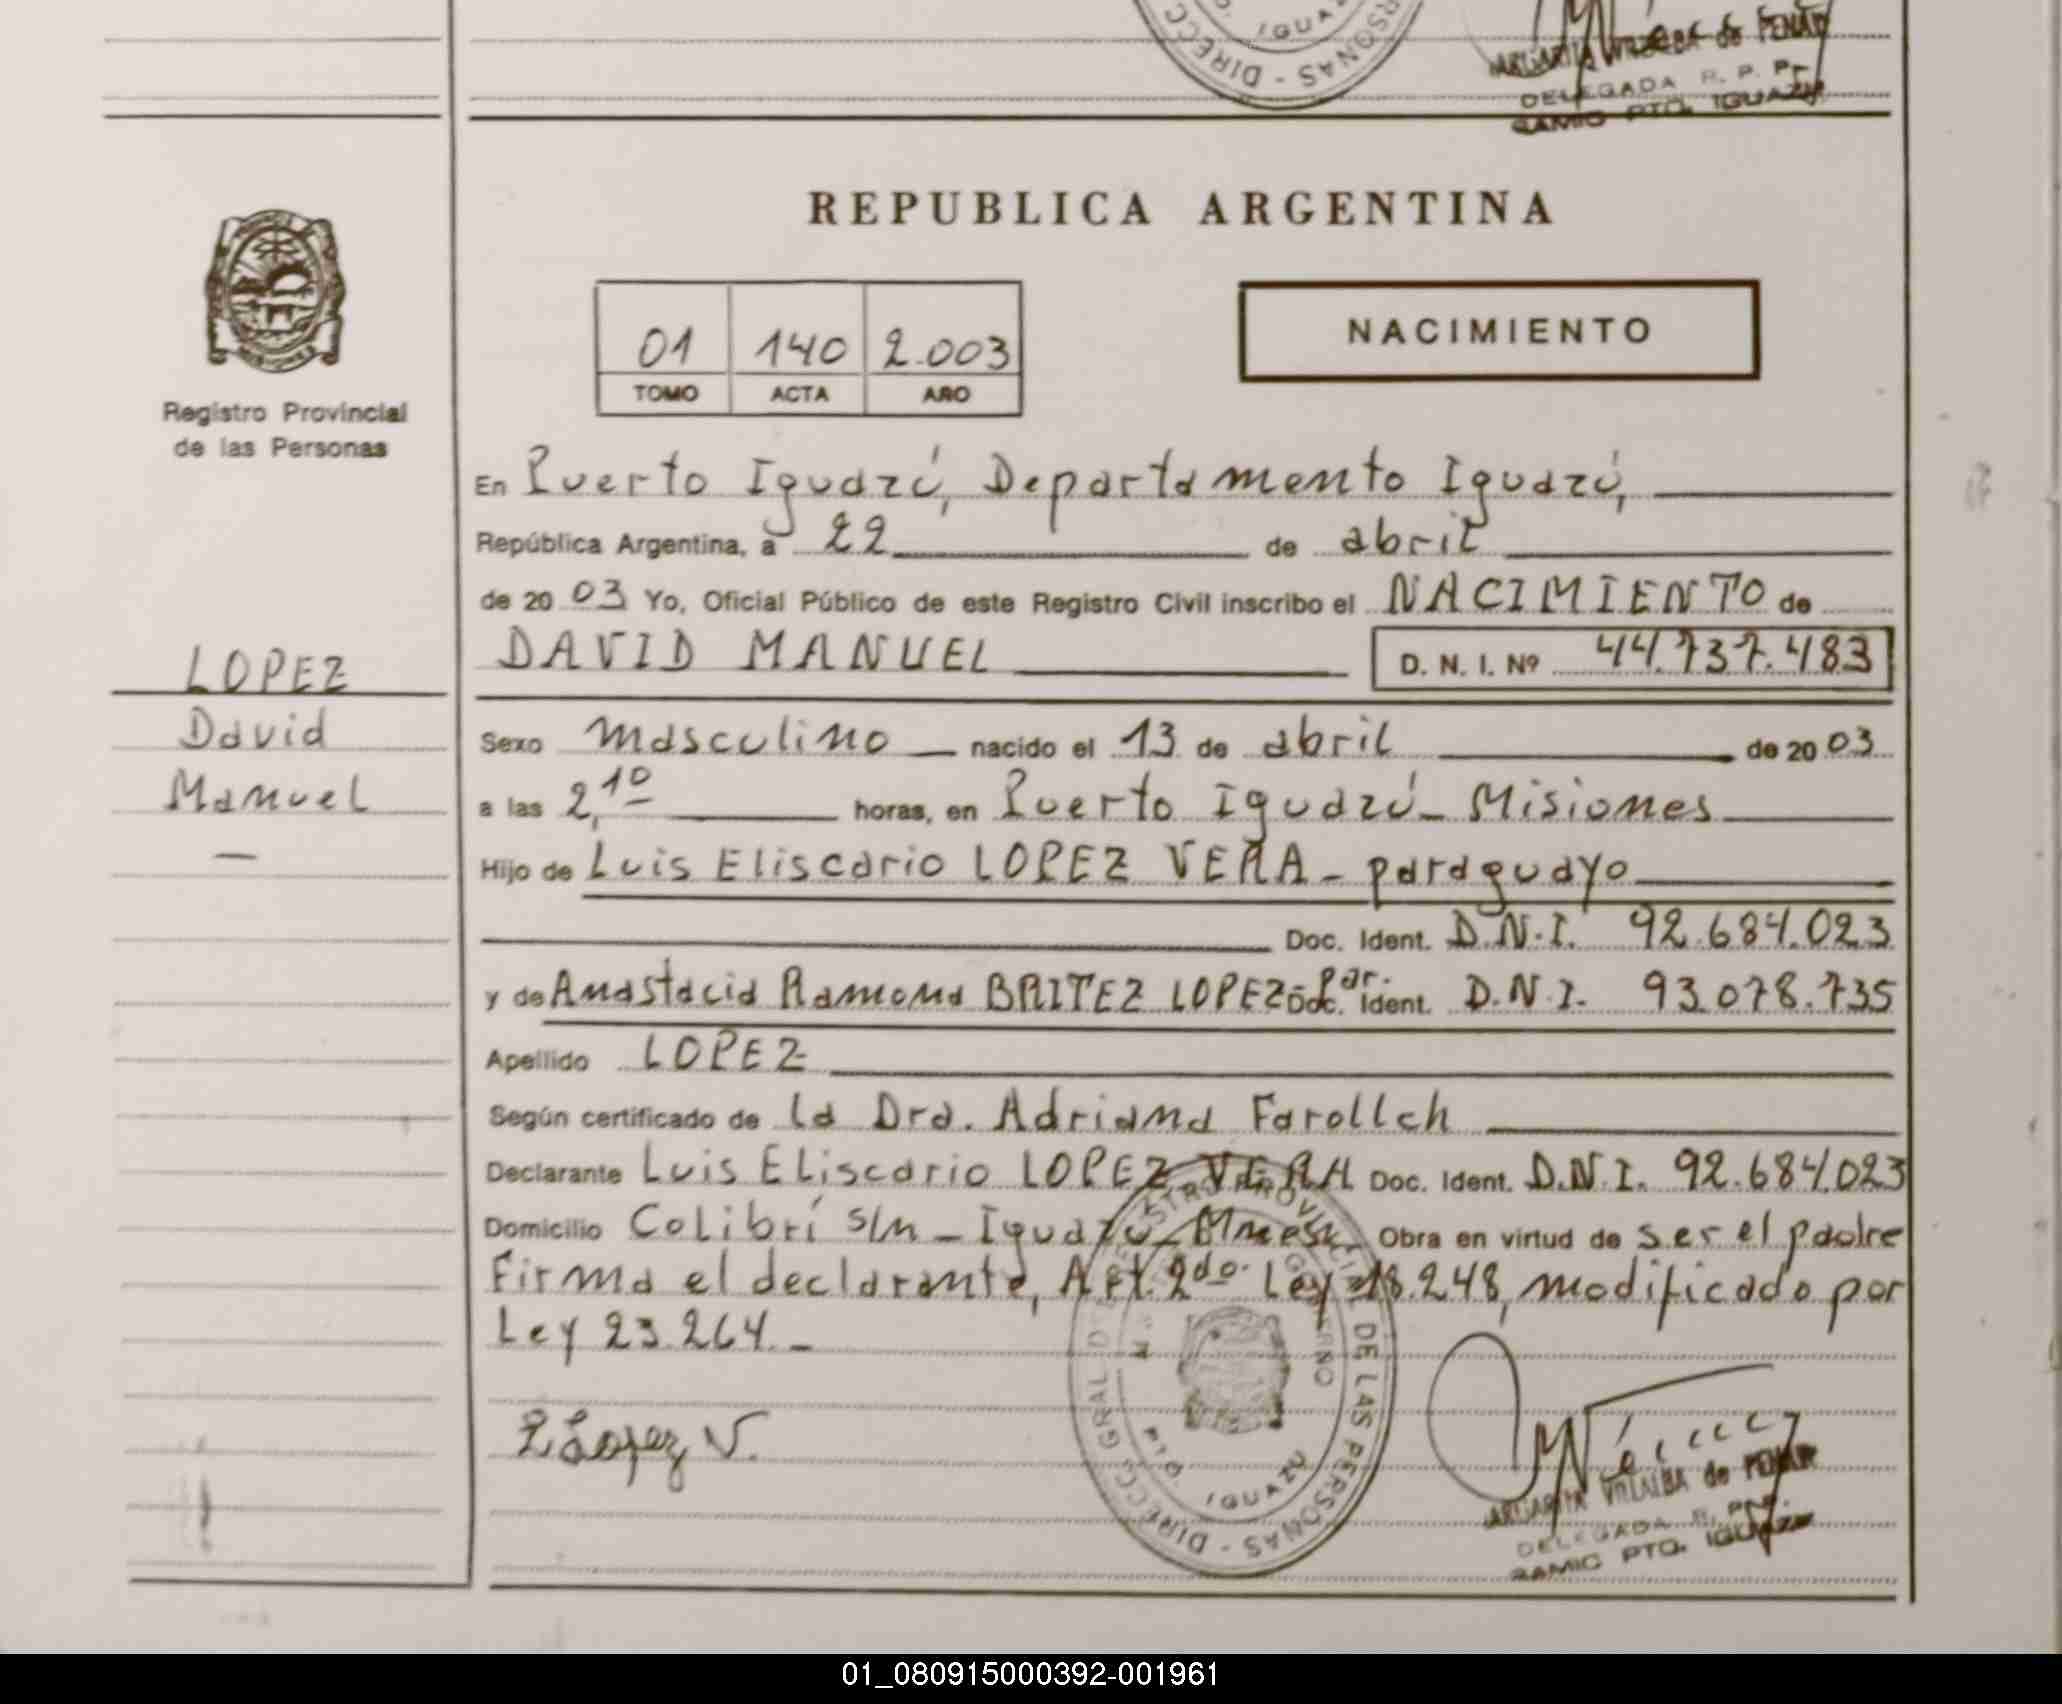 DIRECC
IGUAZ
PERSONAS - DIRECC
VILLALBA de PENA
DELEGADA R. P. P.
RAMIC PTO. IGUAZU
REPUBLICA ARGENTINA
01 140 2.003
TOMO ACTA AÑO
NACIMIENTO
Registro Provincial
de las Personas
En Puerto Iguazú, Departamento Iguazú,
República Argentina, a 22 de abril
de 20 03 Yo, Oficial Público de este Registro Civil inscribo el NACIMIENTO de
LOPEZ
David
Manuel
DAVID MANUEL D. N. I. Nº 44.737.483
Sexo masculino nacido el 13 de abril de 20 03
a las 2,10 horas, en Puerto Iguazú - Misiones
Hijo de Luis Eliscario LOPEZ VERA - paraguayo
Doc. Ident. D.N.I. 92.684.023
y de Anastacia Ramona BRITEZ LOPEZ - Par. Doc. Ident. D.N.I. 93.078.735
Apellido LOPEZ
Según certificado de la Dra. Adriana Farollch
Declarante Luis Eliscario LOPEZ VERA Doc. Ident. D.N.I. 92.684.023
Domicilio Colibrí s/n - Iguazú - Mnes. Obra en virtud de ser el padre
Firma el declarante, Art. 2do. Ley 18.248, modificado por
Ley 23.264. -
L Lopez V.
DE LAS PERSONAS - DIRECC GRAL D
PTO. IGUAZU
VILLALBA de PENA
DELEGADA R. P. P.
RAMIC PTO. IGUAZU
01_080915000392-001961